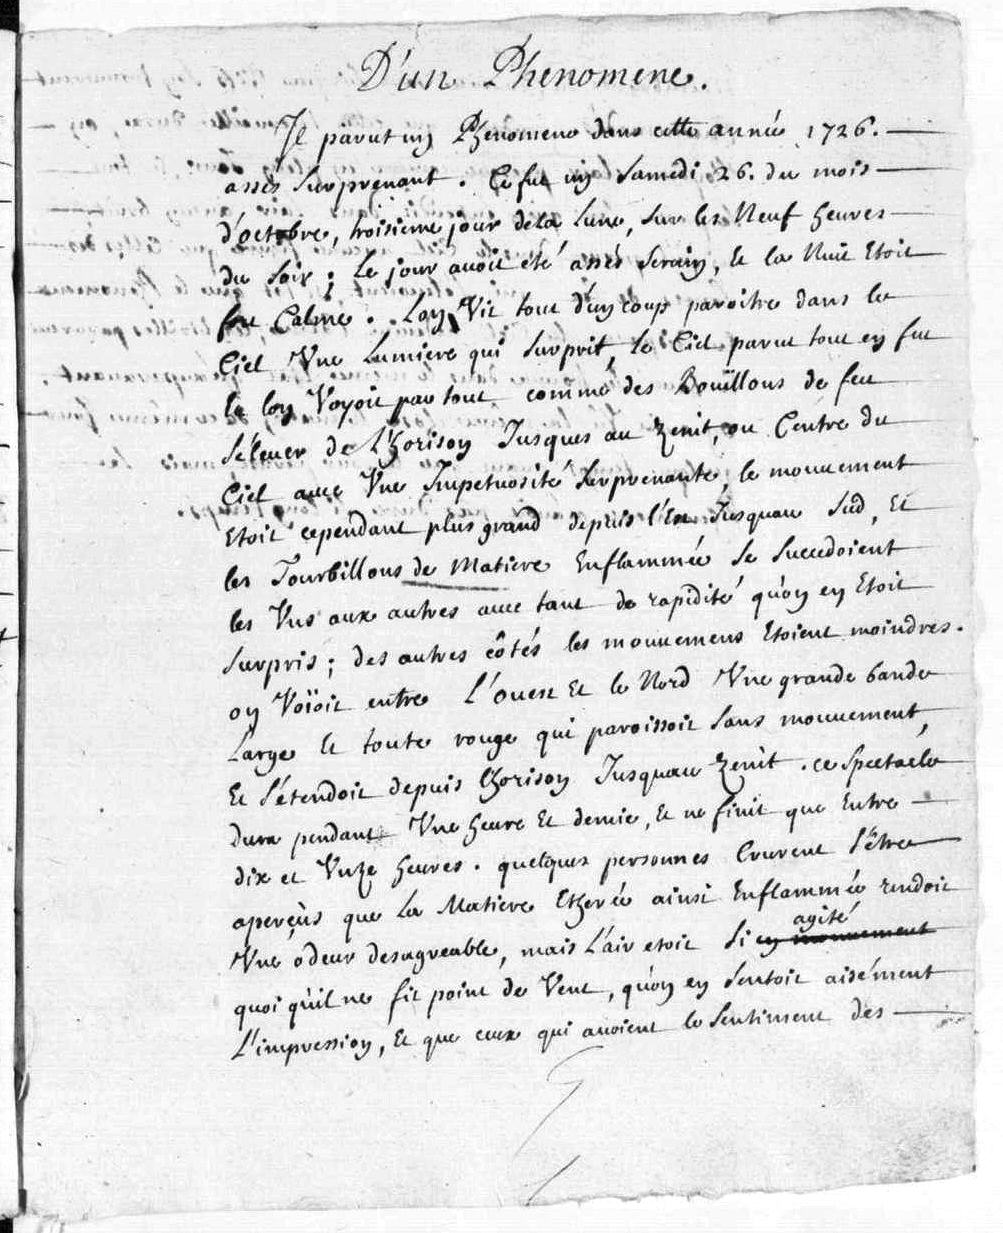 D'un Phenomene.
Il parut un Phenomene dans cette année 1726.
assés surprenant. Ce fut un Samedi 26. du mois
d'octobre, troisieme jour de la Lune, sur les Neuf heures
du soir; Le jour avoit été assés serain, et la Nuit Etoit
fut Calme. Lon Vit tout d'un coup paroitre dans le
Ciel Vne Lumiere qui surprit, le Ciel parut tout en feu
et lon Voyoit par tout comme des Boüillons de feu
s'élever de L'horison Jusques au zenit, ou Centre du
Ciel avec Vne Impetuosité surprenante, le mouvement
Etoit cependant plus grand depuis l'Est Jusquau Sud, Et
les Tourbillons de Matiere Enflammée se succedoient
les Vns aux autres avec tant de rapidité qu'on en Etoit
surpris; des autres côtés les mouvemens Etoient moindres.
on Voïoit entre L'ouest Et le Nord Vne grande bande
Large et toute rouge qui paroissoit sans mouvement,
Et s'étendoit depuis lhorison Jusquau zenit. ce spectacle
dura pendant Vne heure Et demie, et ne finit que Entre
dix et Vnze heures. quelques personnes Crurent s'être
aperçûs que La Matiere Etherée ainsi Enflammée rendoit
Vne odeur desagreable, mais L'air etoit si en mouvement agité
quoi qu'il ne fit point de Vent, qu'on en sentoit aisément
L'impression, Et que ceux qui avoient le sentiment des